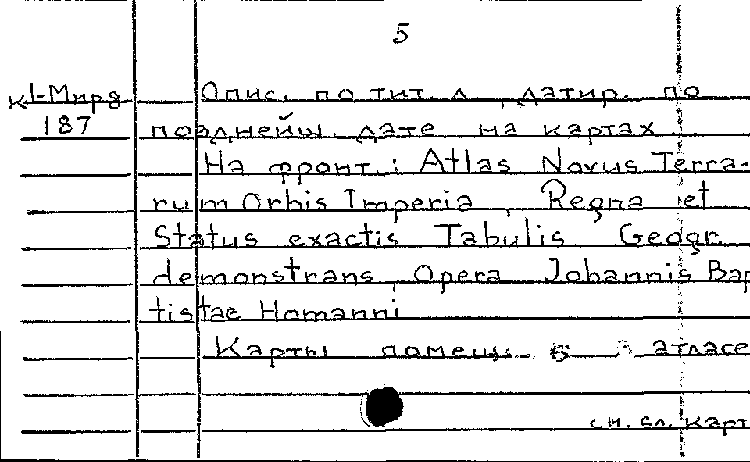 5
К1-Мира Опис. по тит. л., датир. по
187 позднейш. дате на картах
На фронт.: Atlas Novus Terra-
rum Orbis Imperia, Regna et
Status exactis Tabulis Geogr.
demonstrans, Opera Johannis Bap
tistae Homanni
Карты помещ. в атласе
см. сл. карт